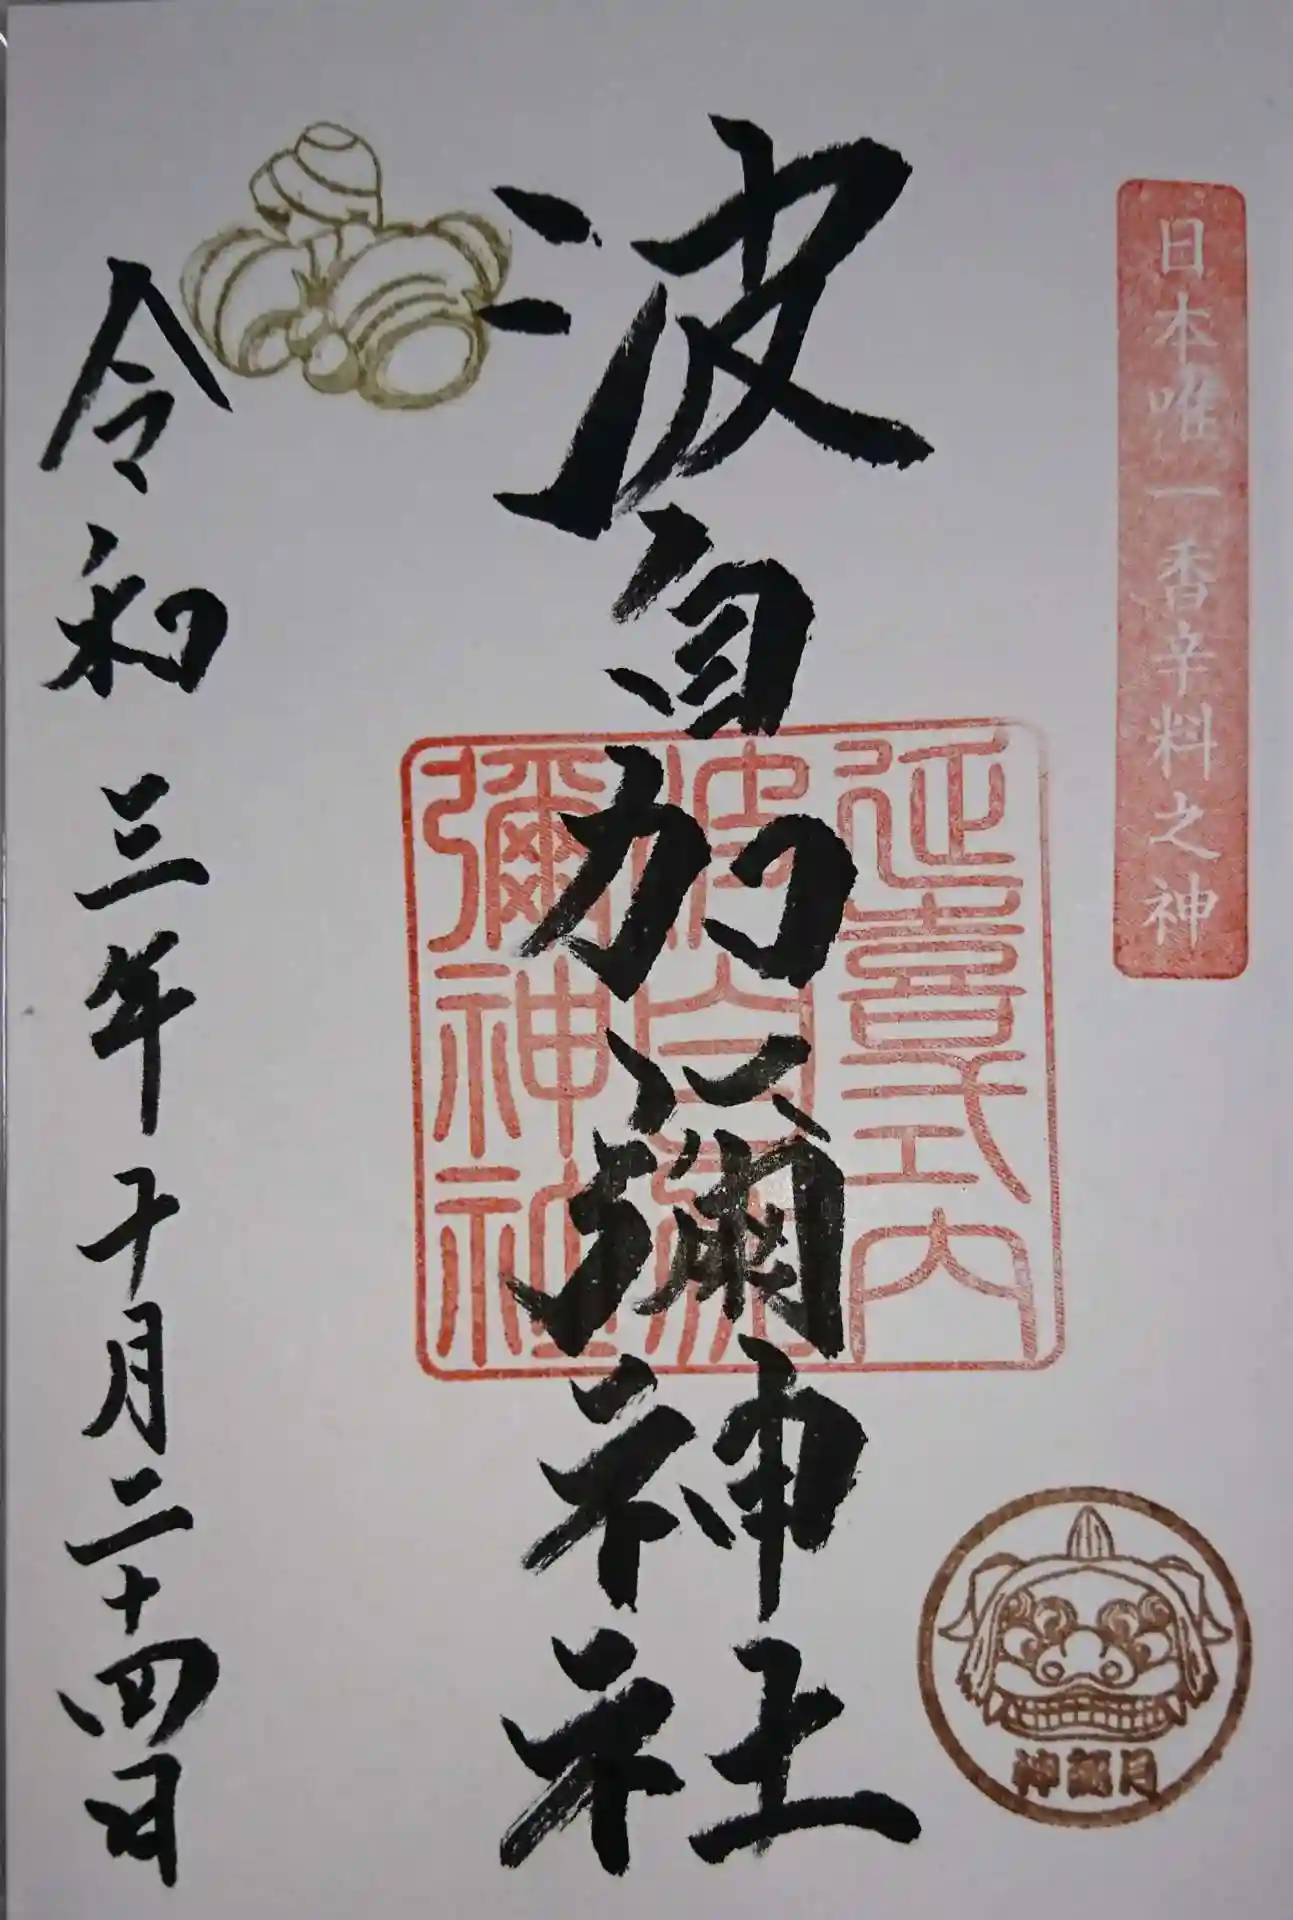 日本唯一香辛料之神
波自加彌神社
延喜式内
波自加
彌神社
令和三年十月二十四日
神無月